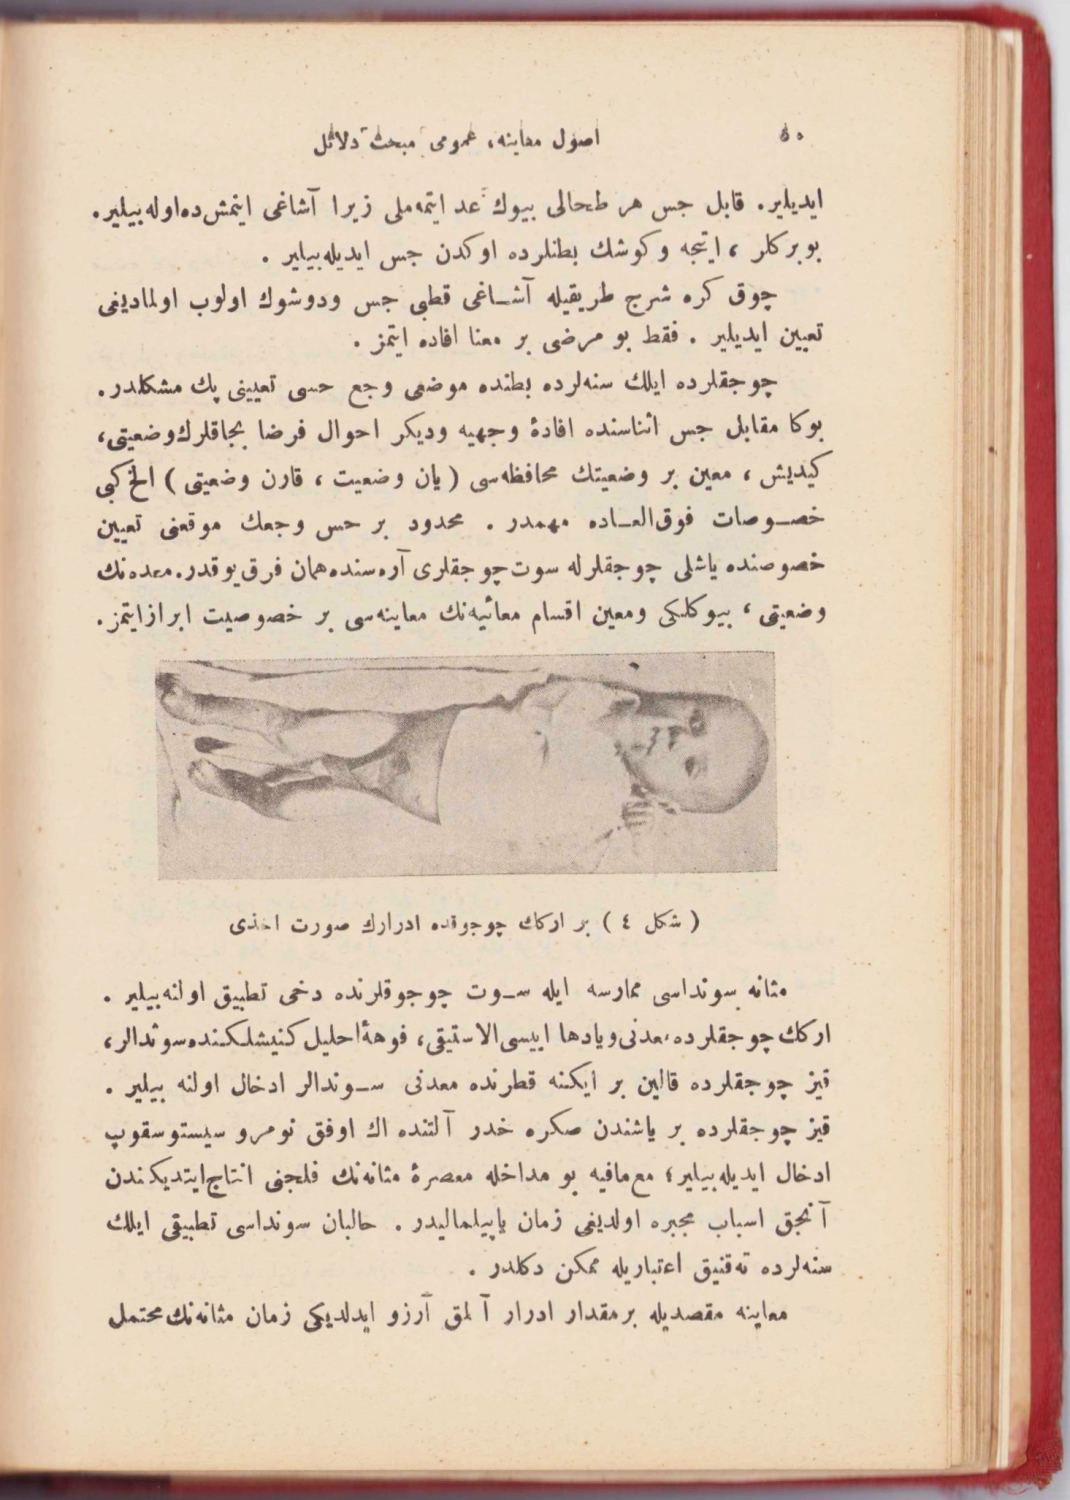 ٥٠ اصول معاينه، عمومی مبحث دلائل
ايديلير. قابل جس هر طحالی بيوك عد ايتمه‌ملی زيرا آشاغی اينمش‌ده‌اوله‌بيلير.
بوبركلر ، اينجه وكوشك بطنلرده اوكدن جس ايديله‌بيلير .
چوق كره شرج طريقيله آشاغی قطبی جس ودوشوك اولوب اولماديغی
تعيين ايديلير . فقط بو مرضی بر معنا افاده ايتمز .
چوجقلرده ايلك سنه‌لرده بطنده موضعی وجع حسی تعيينی پك مشكلدر.
بوكا مقابل جس اثناسنده افادهٔ وجهيه وديكر احوال فرضا بجاقلرك‌وضعيتی،
كيديش ، معين بر وضعيتك محافظه‌سی ( يان وضعيت ، قارن وضعيتی ) الخ كبی
خصوصات فوق‌العاده مهمدر . محدود بر حس وجعك موقعنی تعيين
خصوصنده ياشلی چوجقلرله سوت‌چوجقلری آره‌سنده‌همان فرق‌يوقدر. معده‌نك
وضعيتی ، بيوكلكی ومعين اقسام معائيه‌نك معاينه‌سی بر خصوصيت ابرازايتمز.
( شكل ٤ ) بر اركك چوجوقده ادرارك صورت اخذی
مثانه سونداسی ممارسه ايله سوت چوجوقلرنده دخی تطبيق اولنه‌بيلير .
اركك‌چوجقلرده معدنی‌ويادها ايیسی‌الاستيقی، فوهه‌ٔاحليل‌كنيشلكنده‌سوندالر،
قيز چوجقلرده قالين بر ايكنه قطرنده معدنی سوندالر ادخال اولنه بيلير .
قيز چوجقلرده بر ياشندن صكره خدر آلتنده اك اوفق نومرو سيستوسقوپ
ادخال ايديله‌بيلير؛ مع‌مافيه بو مداخله معصرهٔ مثانه‌نك فلجنی انتاج‌ايتديكندن
آنجق اسباب مجبره اولديغی زمان ياپيلماليدر . حالبان سونداسی تطبيقی ايلك
سنه‌لرده ته‌قنيق اعتباريله ممكن دكلدر .
معاينه مقصديله برمقدار ادرار آلمق آرزو ايدلديكی زمان مثانه‌نك‌محتمل